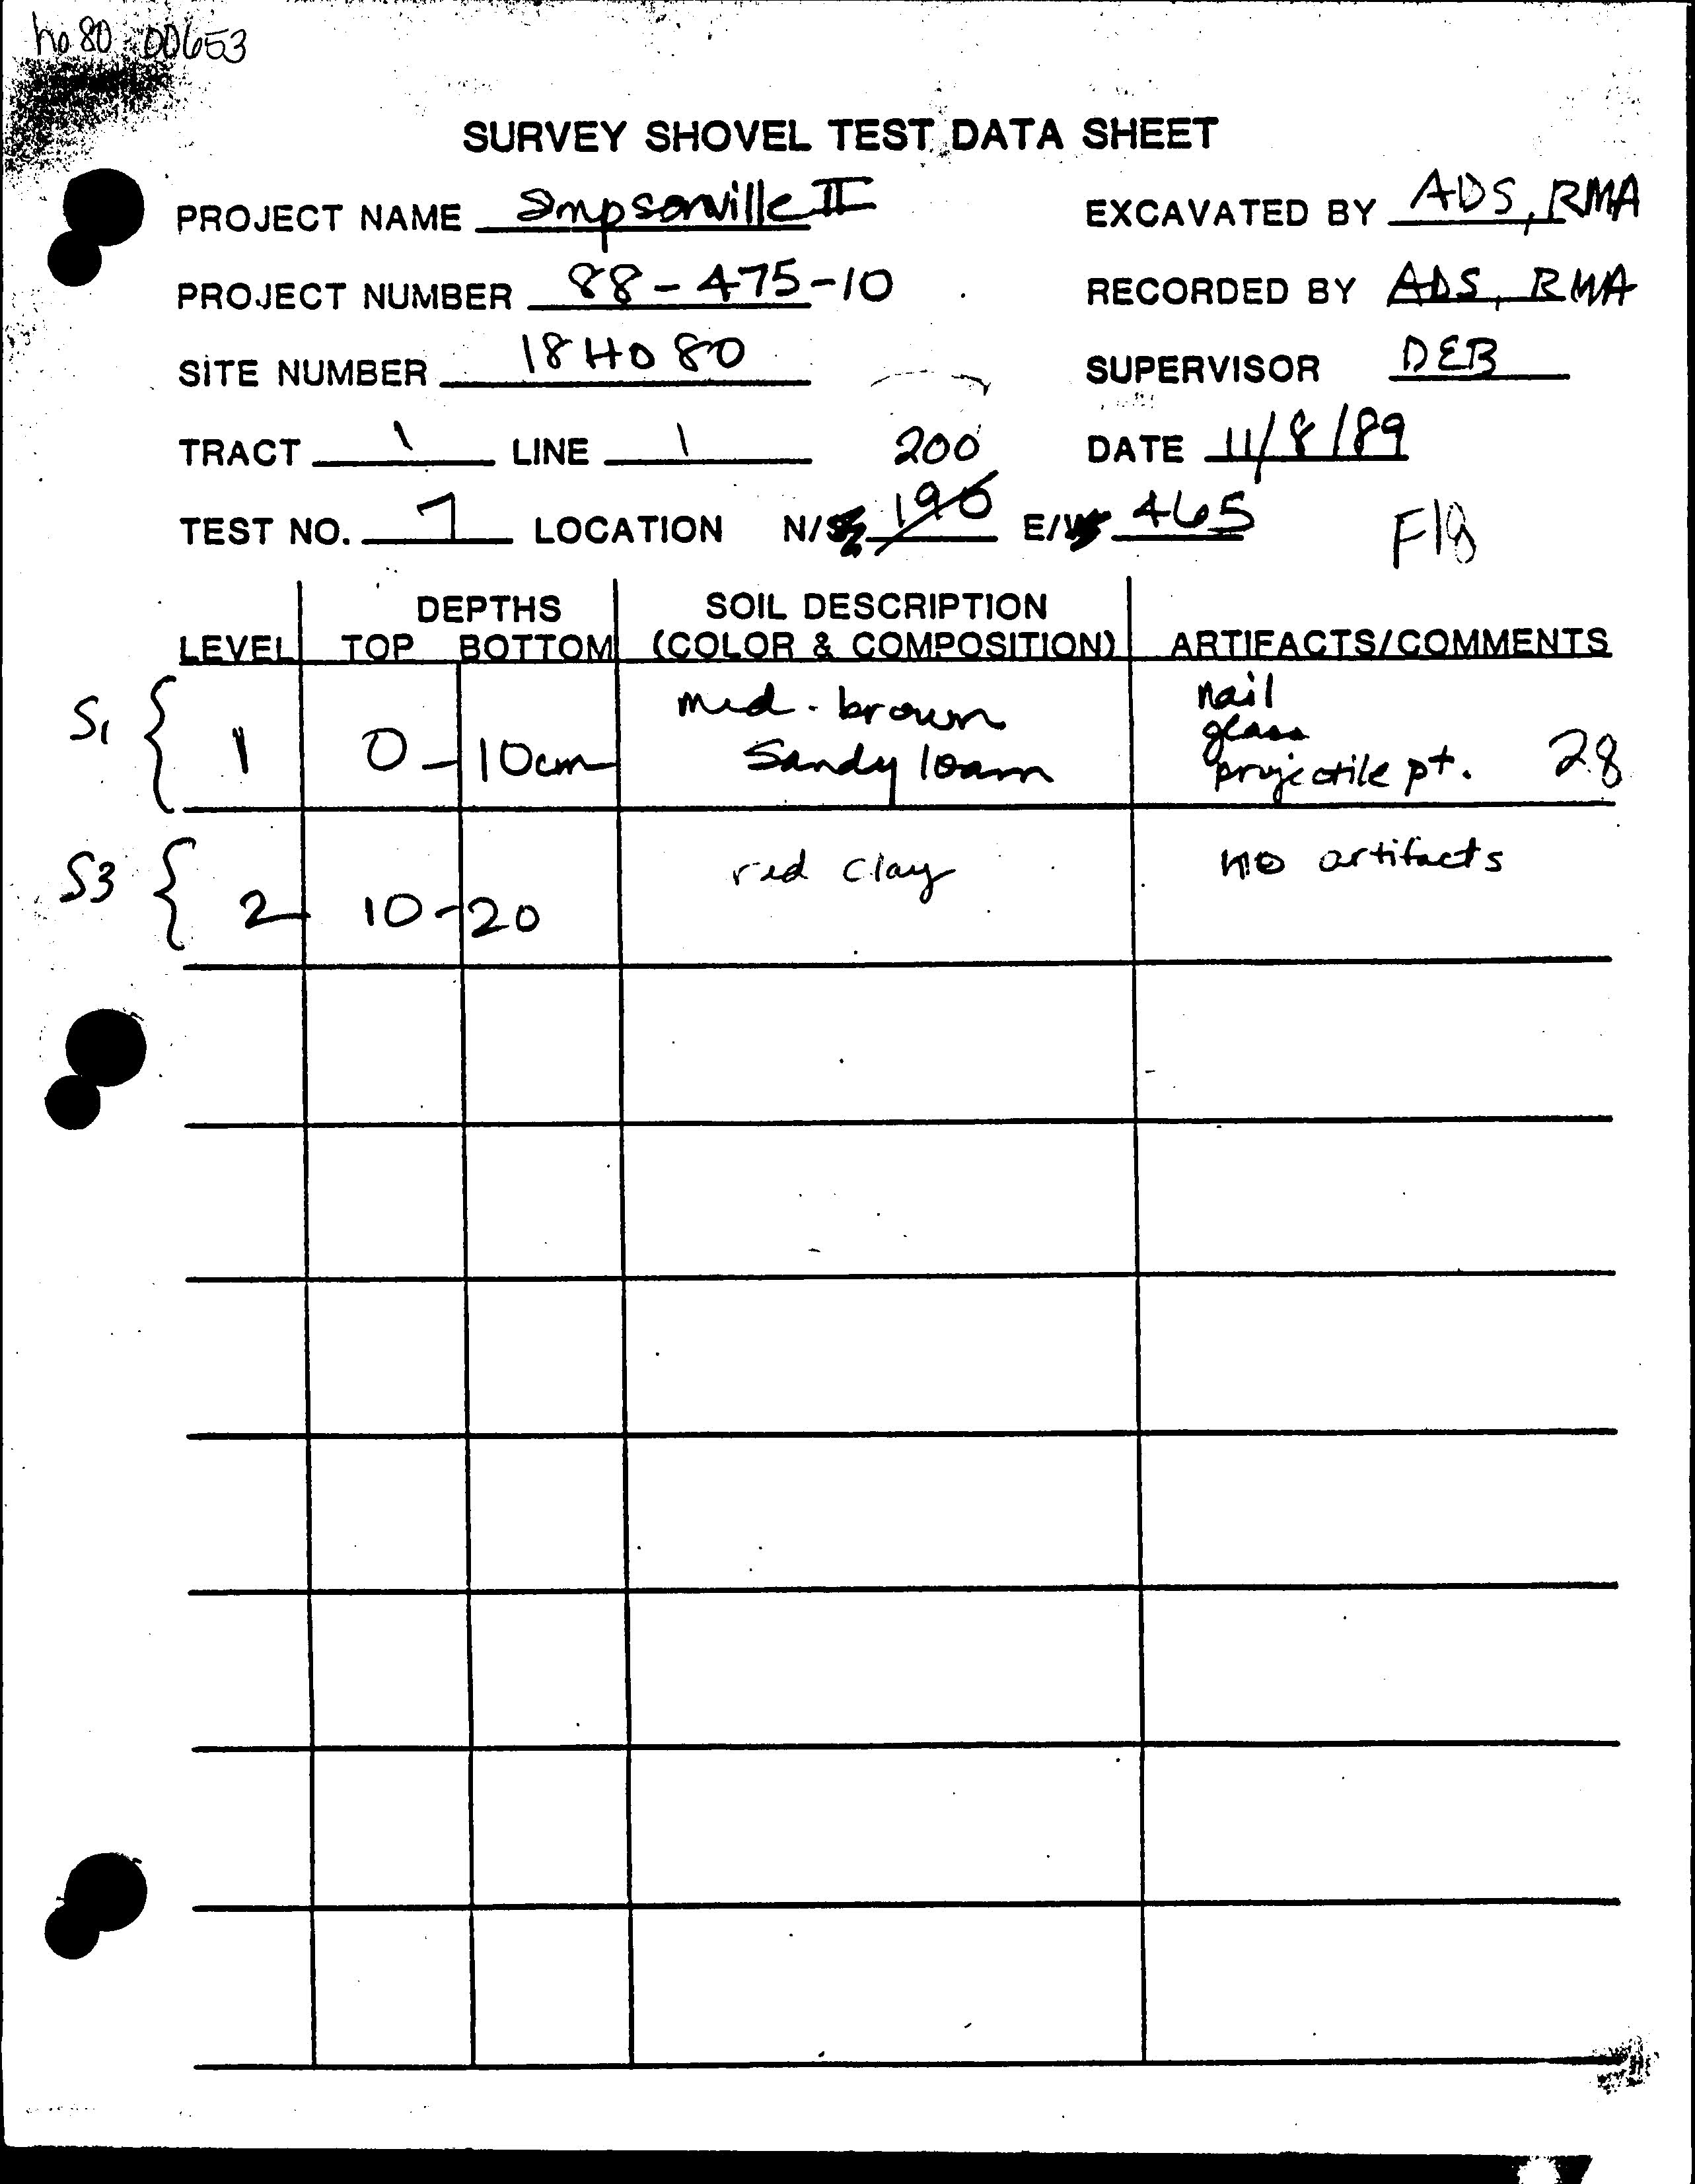 ho 80 00653
SURVEY SHOVEL TEST DATA SHEET
PROJECT NAME Simpsonville II EXCAVATED BY ADS, RMA
PROJECT NUMBER 88-475-10 RECORDED BY ADS, RMA
SITE NUMBER 18 HO 80 SUPERVISOR DEB
TRACT 1 LINE 1 200 DATE 11/8/89
TEST NO. 7 LOCATION N/S 190 E/W 465 F18
DEPTHS SOIL DESCRIPTION
LEVEL TOP BOTTOM (COLOR & COMPOSITION) ARTIFACTS/COMMENTS
S1 { 1 0 - 10cm med. brown nail
Sandy loam glass
projectile pt. 28
S3 { 2 10 - 20 red clay no artifacts